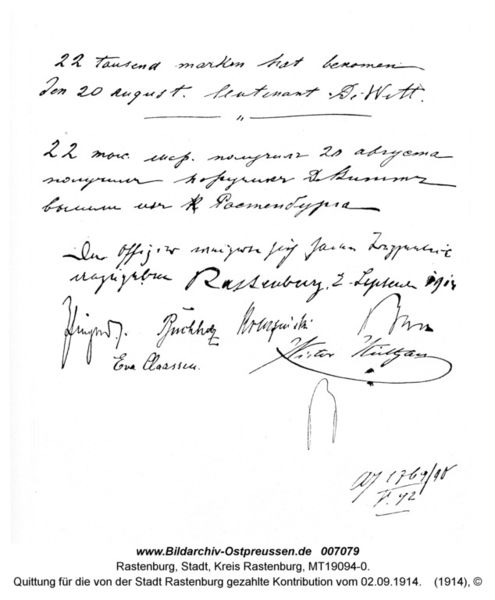 22 tausend marken hat benomen
den 20 august. leutenant De-Witt.
22 тыс. мар. получил 20 августа
получил поручик Де Виттъ
г Растенбурга
Der Offizier weigerte sich seinen Truppenteil
anzugeben Rastenburg, 2 September 1914
Buchholz
Eva Claassen.
AJ 1769/90
F. 42
www.Bildarchiv-Ostpreussen.de 007079
Rastenburg, Stadt, Kreis Rastenburg, MT19094-0.
Quittung für die von der Stadt Rastenburg gezahlte Kontribution vom 02.09.1914. (1914), ©